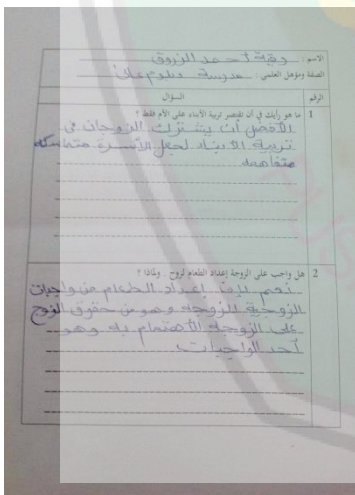 الاسم: رقية احمد الزروق
الصفة ومؤهل العلمي: مدرسة دبلوم عالي
الرقم السؤال
1 ما هو رأيك في أن تقتصر تربية الأبناء على الأم فقط ؟
الأفضل أن يشترك الزوجان في
تربية الابناء لجعل الأسرة متماسكة
متفاهمة
2 هل واجب على الزوجة إعداد الطعام لزوج . ولماذا ؟
نعم إعداد الطعام من واجبات
الزوجية للزوجة وهو من حقوق الزوج
على الزوجة الأهتمام به وهو
أحد الواجبات